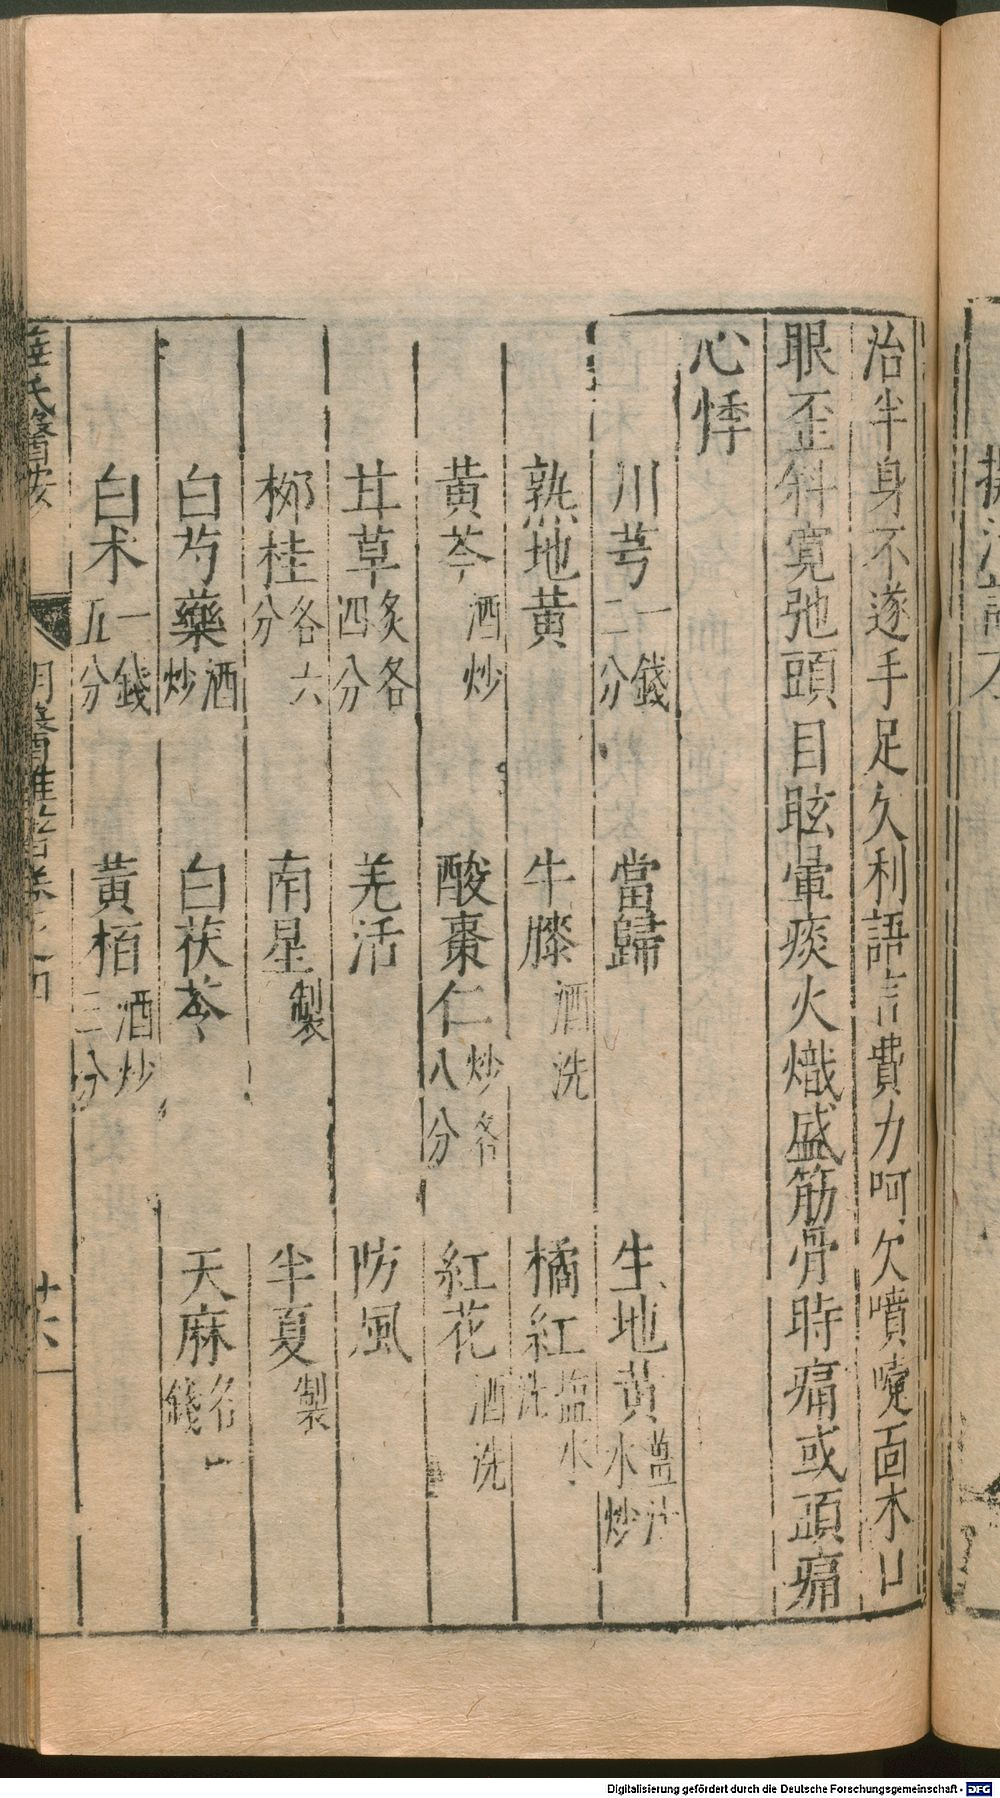 治半身不遂手足欠利語言費力呵欠噴嚏面木口
眼歪斜寛弛頭目眩暈痰火熾盛筋骨時痛或頭痛
心悸
川芎一錢二分 當歸 生地黄薑汁水炒
熟地黄 牛膝酒洗 橘紅塩水洗
黄芩酒炒 酸棗仁炒各八分 紅花酒洗
甘草炙各四分 羌活 防風
柳桂各六分 南星製 半夏製
白芍藥酒炒 白茯苓 天麻各一錢
白术一錢五分 黄栢酒炒三分
薛氏醫按 明醫雜著卷之四 廿六
Digitalisierung gefördert durch die Deutsche Forschungsgemeinschaft - DFG